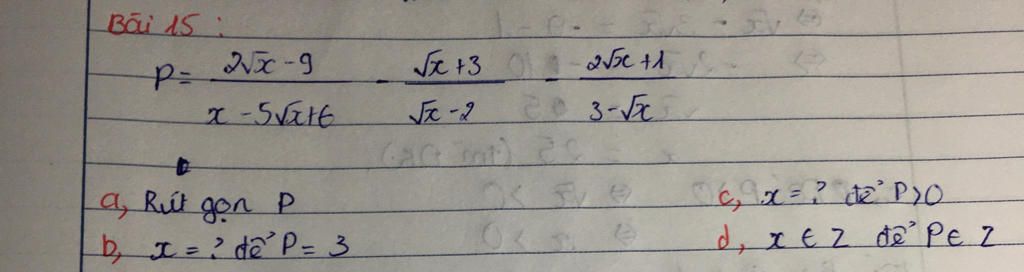 Bài 15 :
P = (2√x - 9)/(x - 5√x + 6) - (√x + 3)/(√x - 2) - (2√x + 1)/(3 - √x)
a, Rút gọn P
c, x = ? để P > 0
b, x = ? để P = 3
d, x ∈ Z để P ∈ Z